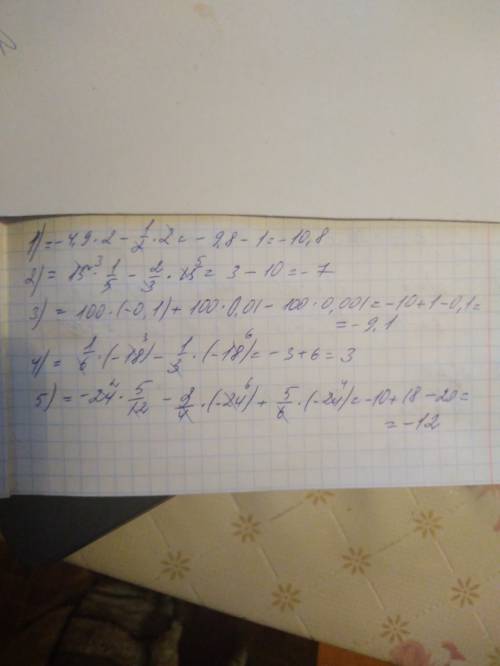 1) = -4,9 · 2 - 1/2 · 2 = - 9,8 - 1 = -10,8
2) = 15³ · 1/5 - 2/3 · 15⁵ = 3 - 10 = -7
3) = 100 · (-0,1) + 100 · 0,01 - 100 · 0,001 = -10 + 1 - 0,1 =
= -9,1
4) = 1/6 · (-18³) - 1/3 · (-18⁶) = -3 + 6 = 3
5) = -24² · 5/12 - 3/4 · (-24⁶) + 5/6 · (-24⁴) = -10 + 18 - 20 =
= -12